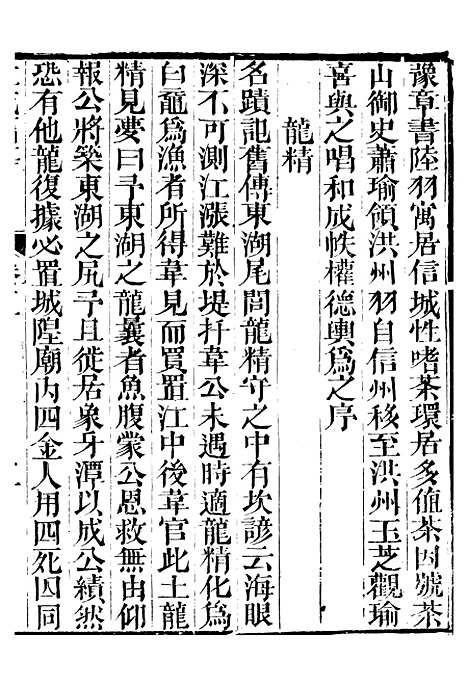 豫章書陸羽寓居信城性嗜茶環居多植茶因號茶
山御史蕭瑜領洪州羽自信州移至洪州玉芝觀瑜
喜與之唱和成帙權德輿爲之序
龍精
名蹟記舊傳東湖尾閭龍精守之中有坎諺云海眼
深不可測江漲難於堤扞韋公未遇時適龍精化爲
白黿爲漁者所得韋見而買置江中後韋官此土龍
精見夢曰予東湖之龍曩者魚腹蒙公恩救無由仰
報公將築東湖之尻予且徙居象牙潭以成公績然
恐有他龍復據必置城隍廟內四金人用四死囚同